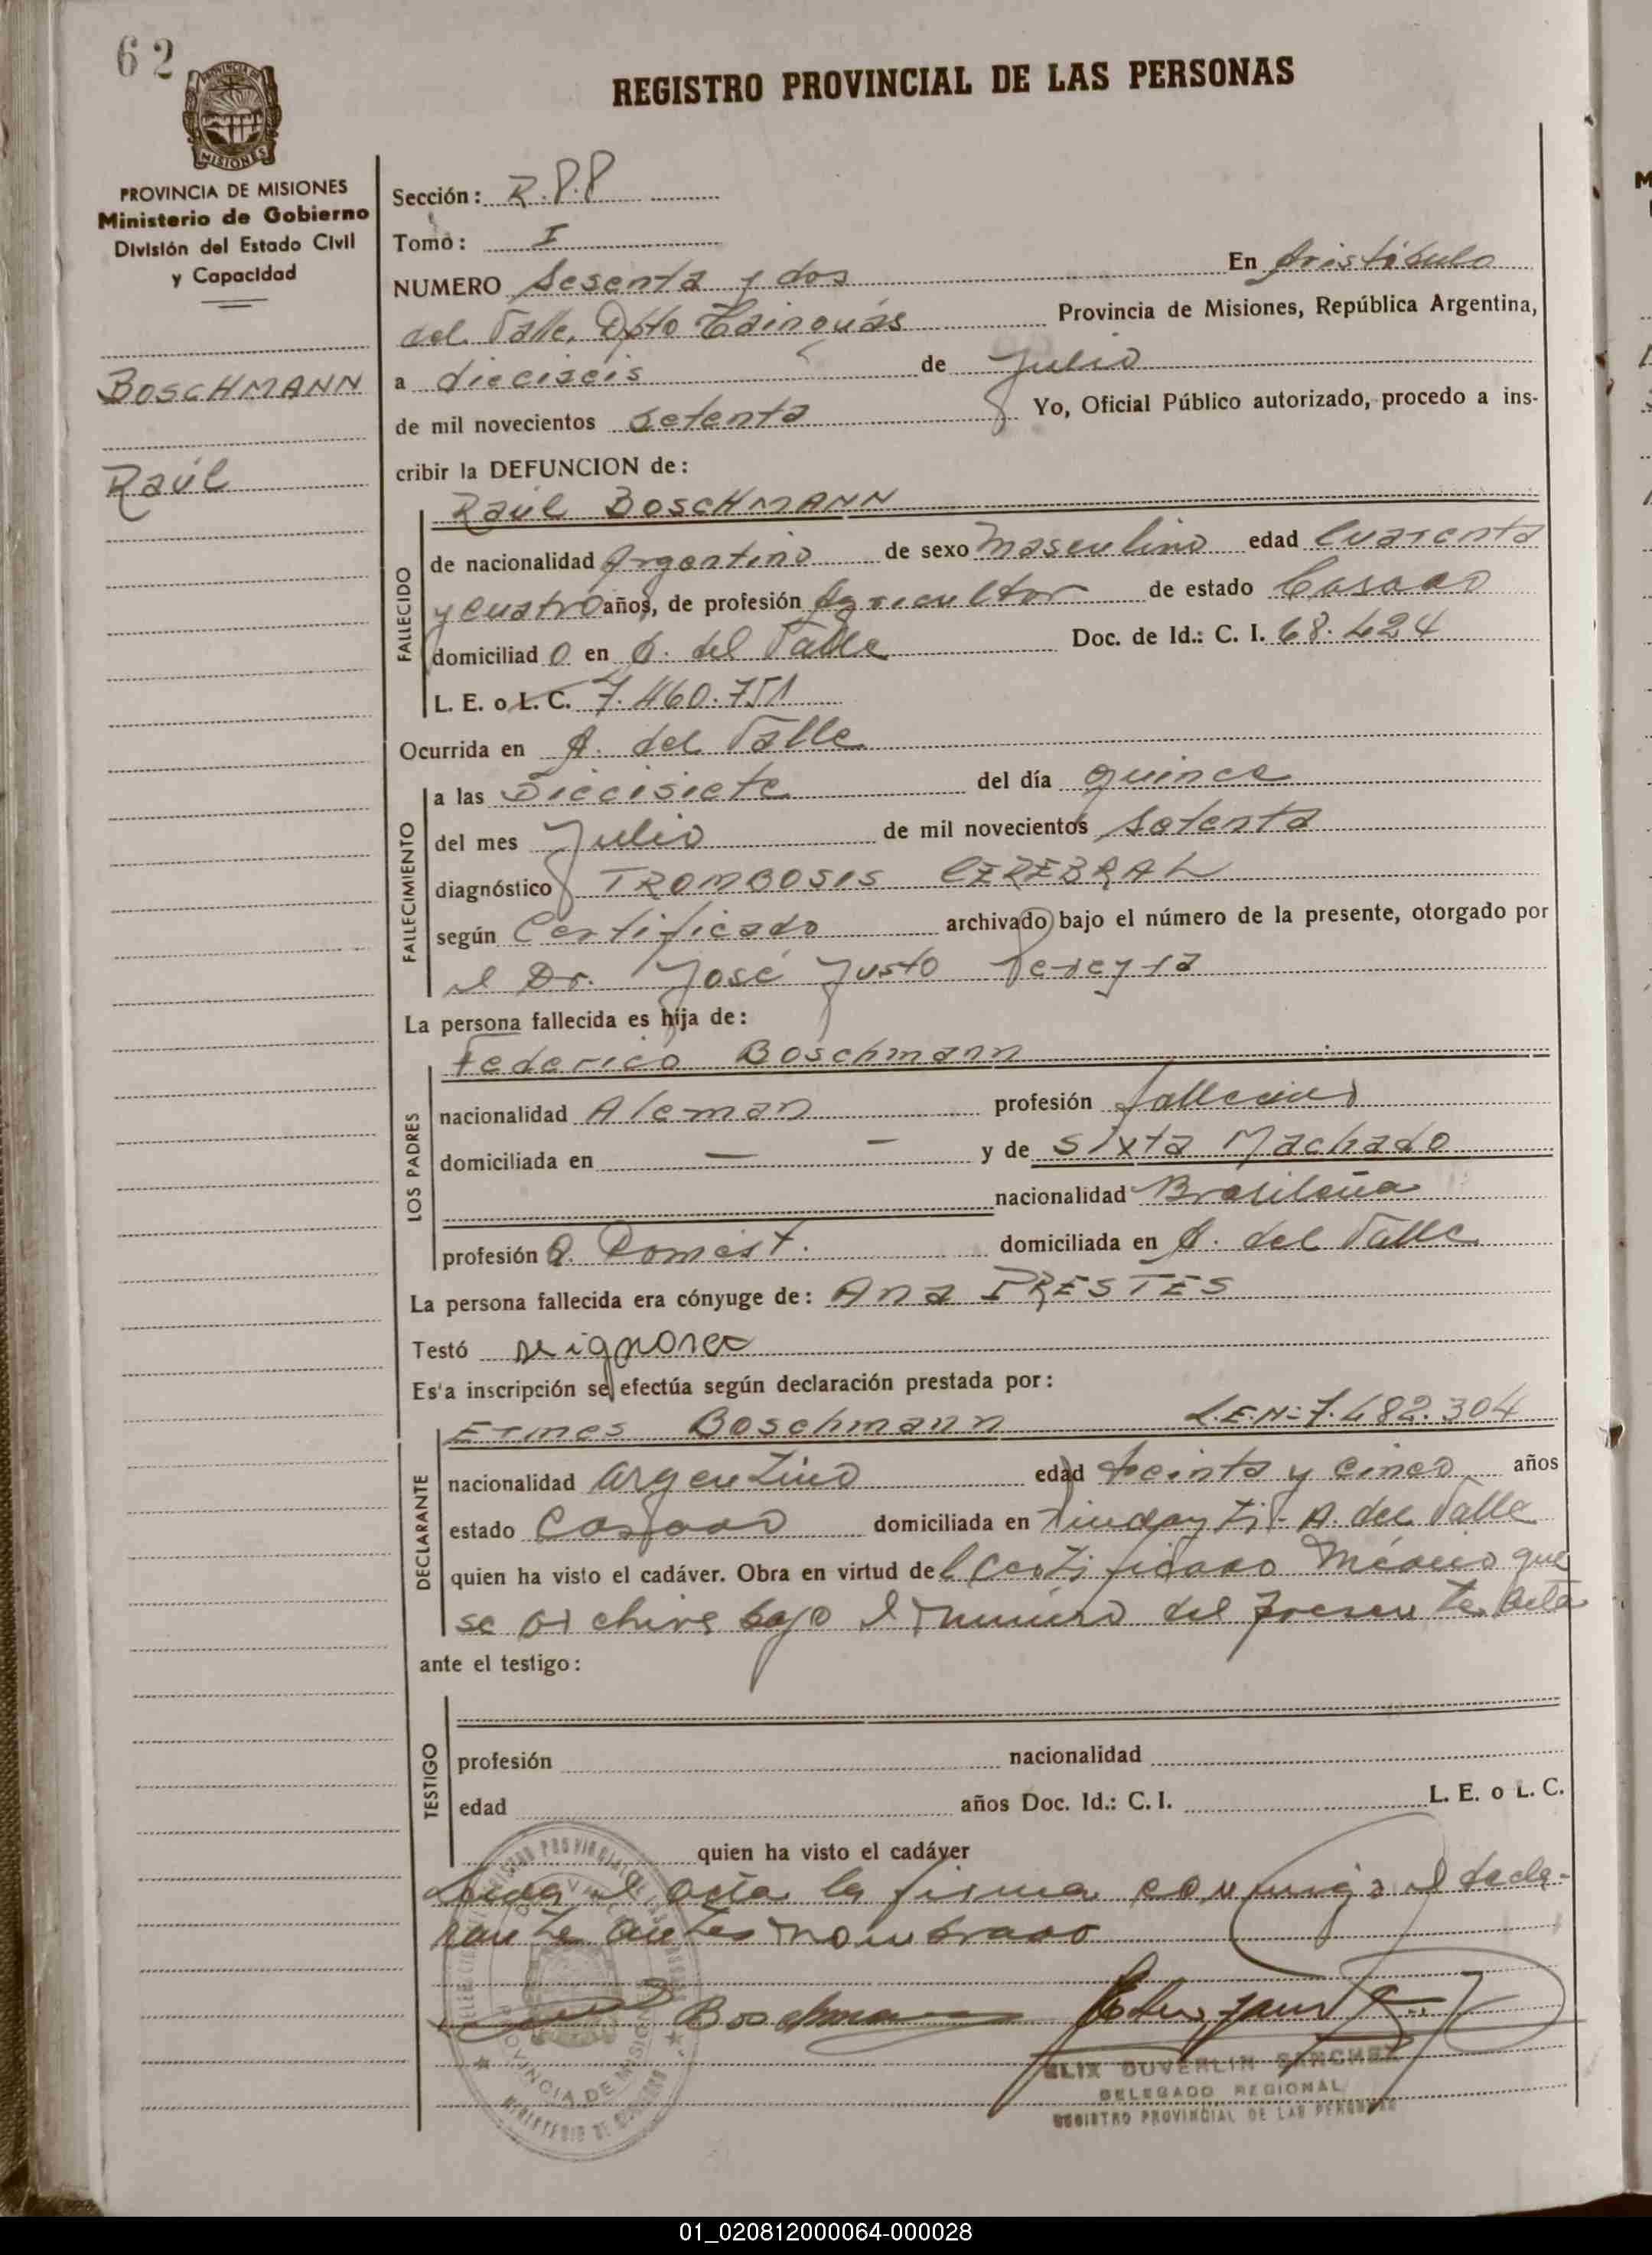 62
REGISTRO PROVINCIAL DE LAS PERSONAS
PROVINCIA DE MISIONES
PROVINCIA DE MISIONES
Ministerio de Gobierno
División del Estado Civil
y Capacidad
BOSCHMANN
Raúl
Sección: R.P.P
Tomo: I
NUMERO Sesenta y dos En Aristóbulo
del Valle, Dpto Cainguás Provincia de Misiones, República Argentina,
a dieciseis de Julio
de mil novecientos setenta Yo, Oficial Público autorizado, procedo a ins-
cribir la DEFUNCION de:
Raúl BOSCHMANN
FALLECIDO
de nacionalidad Argentino de sexo Masculino edad Cuarenta
y cuatro años, de profesión Agricultor de estado Casado
domiciliad o en A. del Valle Doc. de Id.: C. I. 68.424
L. E. o L. C. 7.460.751
Ocurrida en A. del Valle
FALLECIMIENTO
a las Diecisiete del día quince
del mes Julio de mil novecientos setenta
diagnóstico TROMBOSIS CEREBRAL
según Certificado archivado bajo el número de la presente, otorgado por
el Dr. José Justo Pereyra
La persona fallecida es hija de:
LOS PADRES
Federico Boschmann
nacionalidad Aleman profesión fallecido
domiciliada en — — y de Sixta Machado
nacionalidad Brasileña
profesión Q. Domést. domiciliada en A. del Valle
La persona fallecida era cónyuge de: Ana PRESTES
Testó se ignora
Es'a inscripción se efectúa según declaración prestada por:
DECLARANTE
Ermes Boschmann L.E.Nº 7.482.304
nacionalidad argentino edad treinta y cinco años
estado Casado domiciliada en A. del Valle
quien ha visto el cadáver. Obra en virtud del Certificado Médico que
se archiva bajo el número del presente Acta
ante el testigo:
TESTIGO
profesión nacionalidad
edad años Doc. Id.: C. I. L. E. o L. C.
quien ha visto el cadáver
Leída el acta la firma conmigo el decla-
rante antes nombrado
Boschmann
ELIX DUVERLIN SANCHEZ
DELEGADO REGIONAL
REGISTRO PROVINCIAL DE LAS PERSONAS
01_020812000064-000028